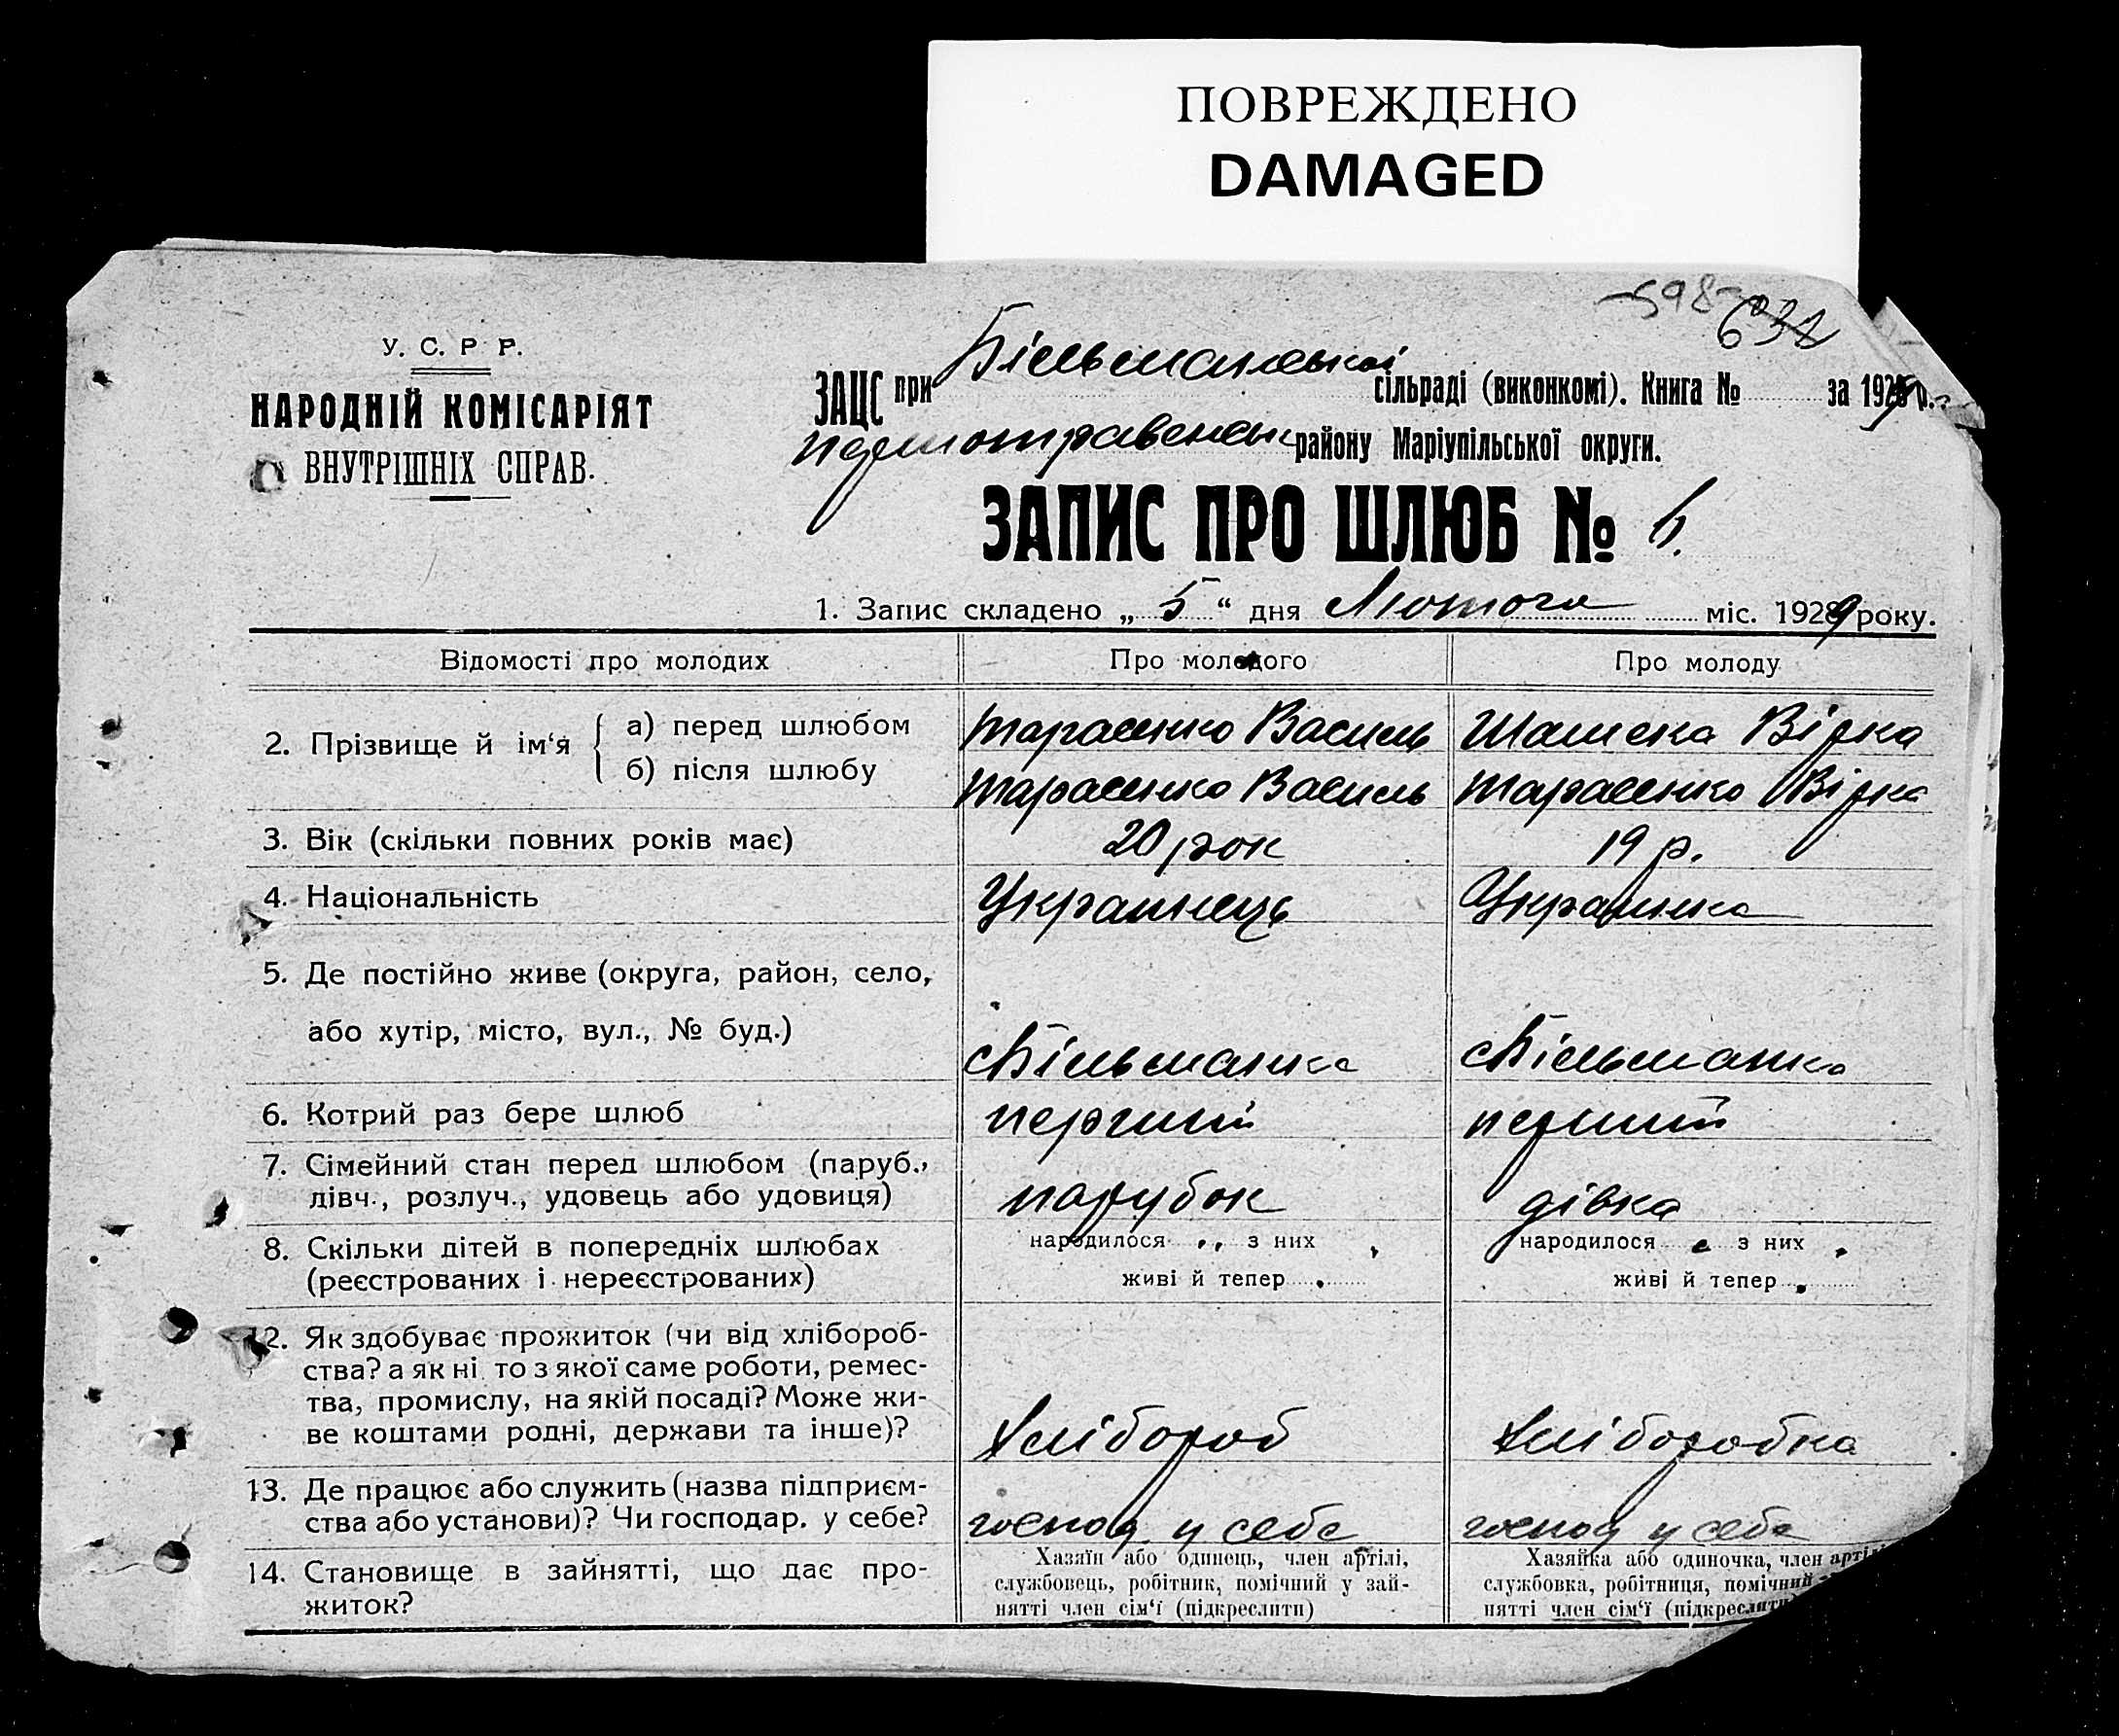 ПОВРЕЖДЕНО
DAMAGED
-598-
632
У. С. Р Р.
НАРОДНІЙ КОМІСАРІЯТ
ВНУТРІШНІХ СПРАВ.
ЗАЦС при Більманській сільраді (виконкомі). Книга № за 1929 р.
району Маріупільської округи.
ЗАПИС ПРО ШЛЮБ №
1. Запис складено „ 5 “ дня Лютого міс. 1929 року.
Відомості про молодих Про молодого Про молоду
2. Прізвище й ім‘я { а) перед шлюбом Тарасенко Василь Вірка
б) після шлюбу Тарасенко Василь Тарасенко Вірка
3. Вік (скільки повних років має) 20 рок 19 р.
4. Національність Українець Українка
5. Де постійно живе (округа, район, село,
або хутір, місто, вул., № буд.) сБільманка сБільманка
6. Котрий раз бере шлюб перший перший
7. Сімейний стан перед шлюбом (паруб.,
дівч., розлуч., удовець або удовиця) парубок дівка
8. Скільки дітей в попередніх шлюбах народилося з них народилося з них
(реєстрованих і нереєстрованих) живі й тепер живі й тепер
12. Як здобуває прожиток (чи від хлібороб-
ства? а як ні то з якої саме роботи, ремес-
тва, промислу, на якій посаді? Може жи-
ве коштами родні, держави та інше)? Хлібороб Хліборобка
13. Де працює або служить (назва підприєм-
ства або установи)? Чи господар. у себе? господ у себе господ у себе
14. Становище в зайнятті, що дає про-
житок?
Хазяїн або одинець, член артілі,
службовець, робітник, помічний у зай-
нятті член сім‘ї (підкреслити)
Хазяйка або одиночка, член артілі
службовка, робітниця, помічний
нятті член сім‘ї (підкреслити